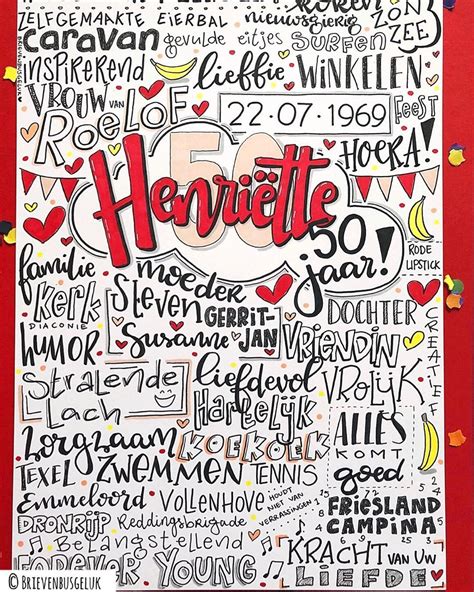 KOKEN
ZON
ZELFGEMAAKTE EIERBAL
nieuwsgierig
ZEE
caravan
gevulde eitjes
SURFEN
inspirerend
lieffie
WINKELEN
VROUW VAN
ROELOF
22.07.1969
Feest
50
HOERA!
Henriëtte
50
jaar!
RODE
LIPSTICK
familie
moeder
kerk
DIACONIE
Steven
GERRIT-
JAN
Susanne
DOCHTER
VRIENDIN
CREATIEF
HUMOR
Stralende
Lach
liefdevol
VROLIJK
HARTELIJK
Zorgzaam
KOEKOEK
ALLES
KOMT
goed
TEXEL
ZWEMMEN
TENNIS
Emmeloord
VOLLENHOVE
HOUDT
NIET VAN
VERRASSINGEN
FRIESLAND
CAMPINA
DRONRIJP
Reddingsbrigade
Belangstellend
KRACHT VAN UW
LIEFDE
FOREVER YOUNG
© BRIEVENBUSGELUK